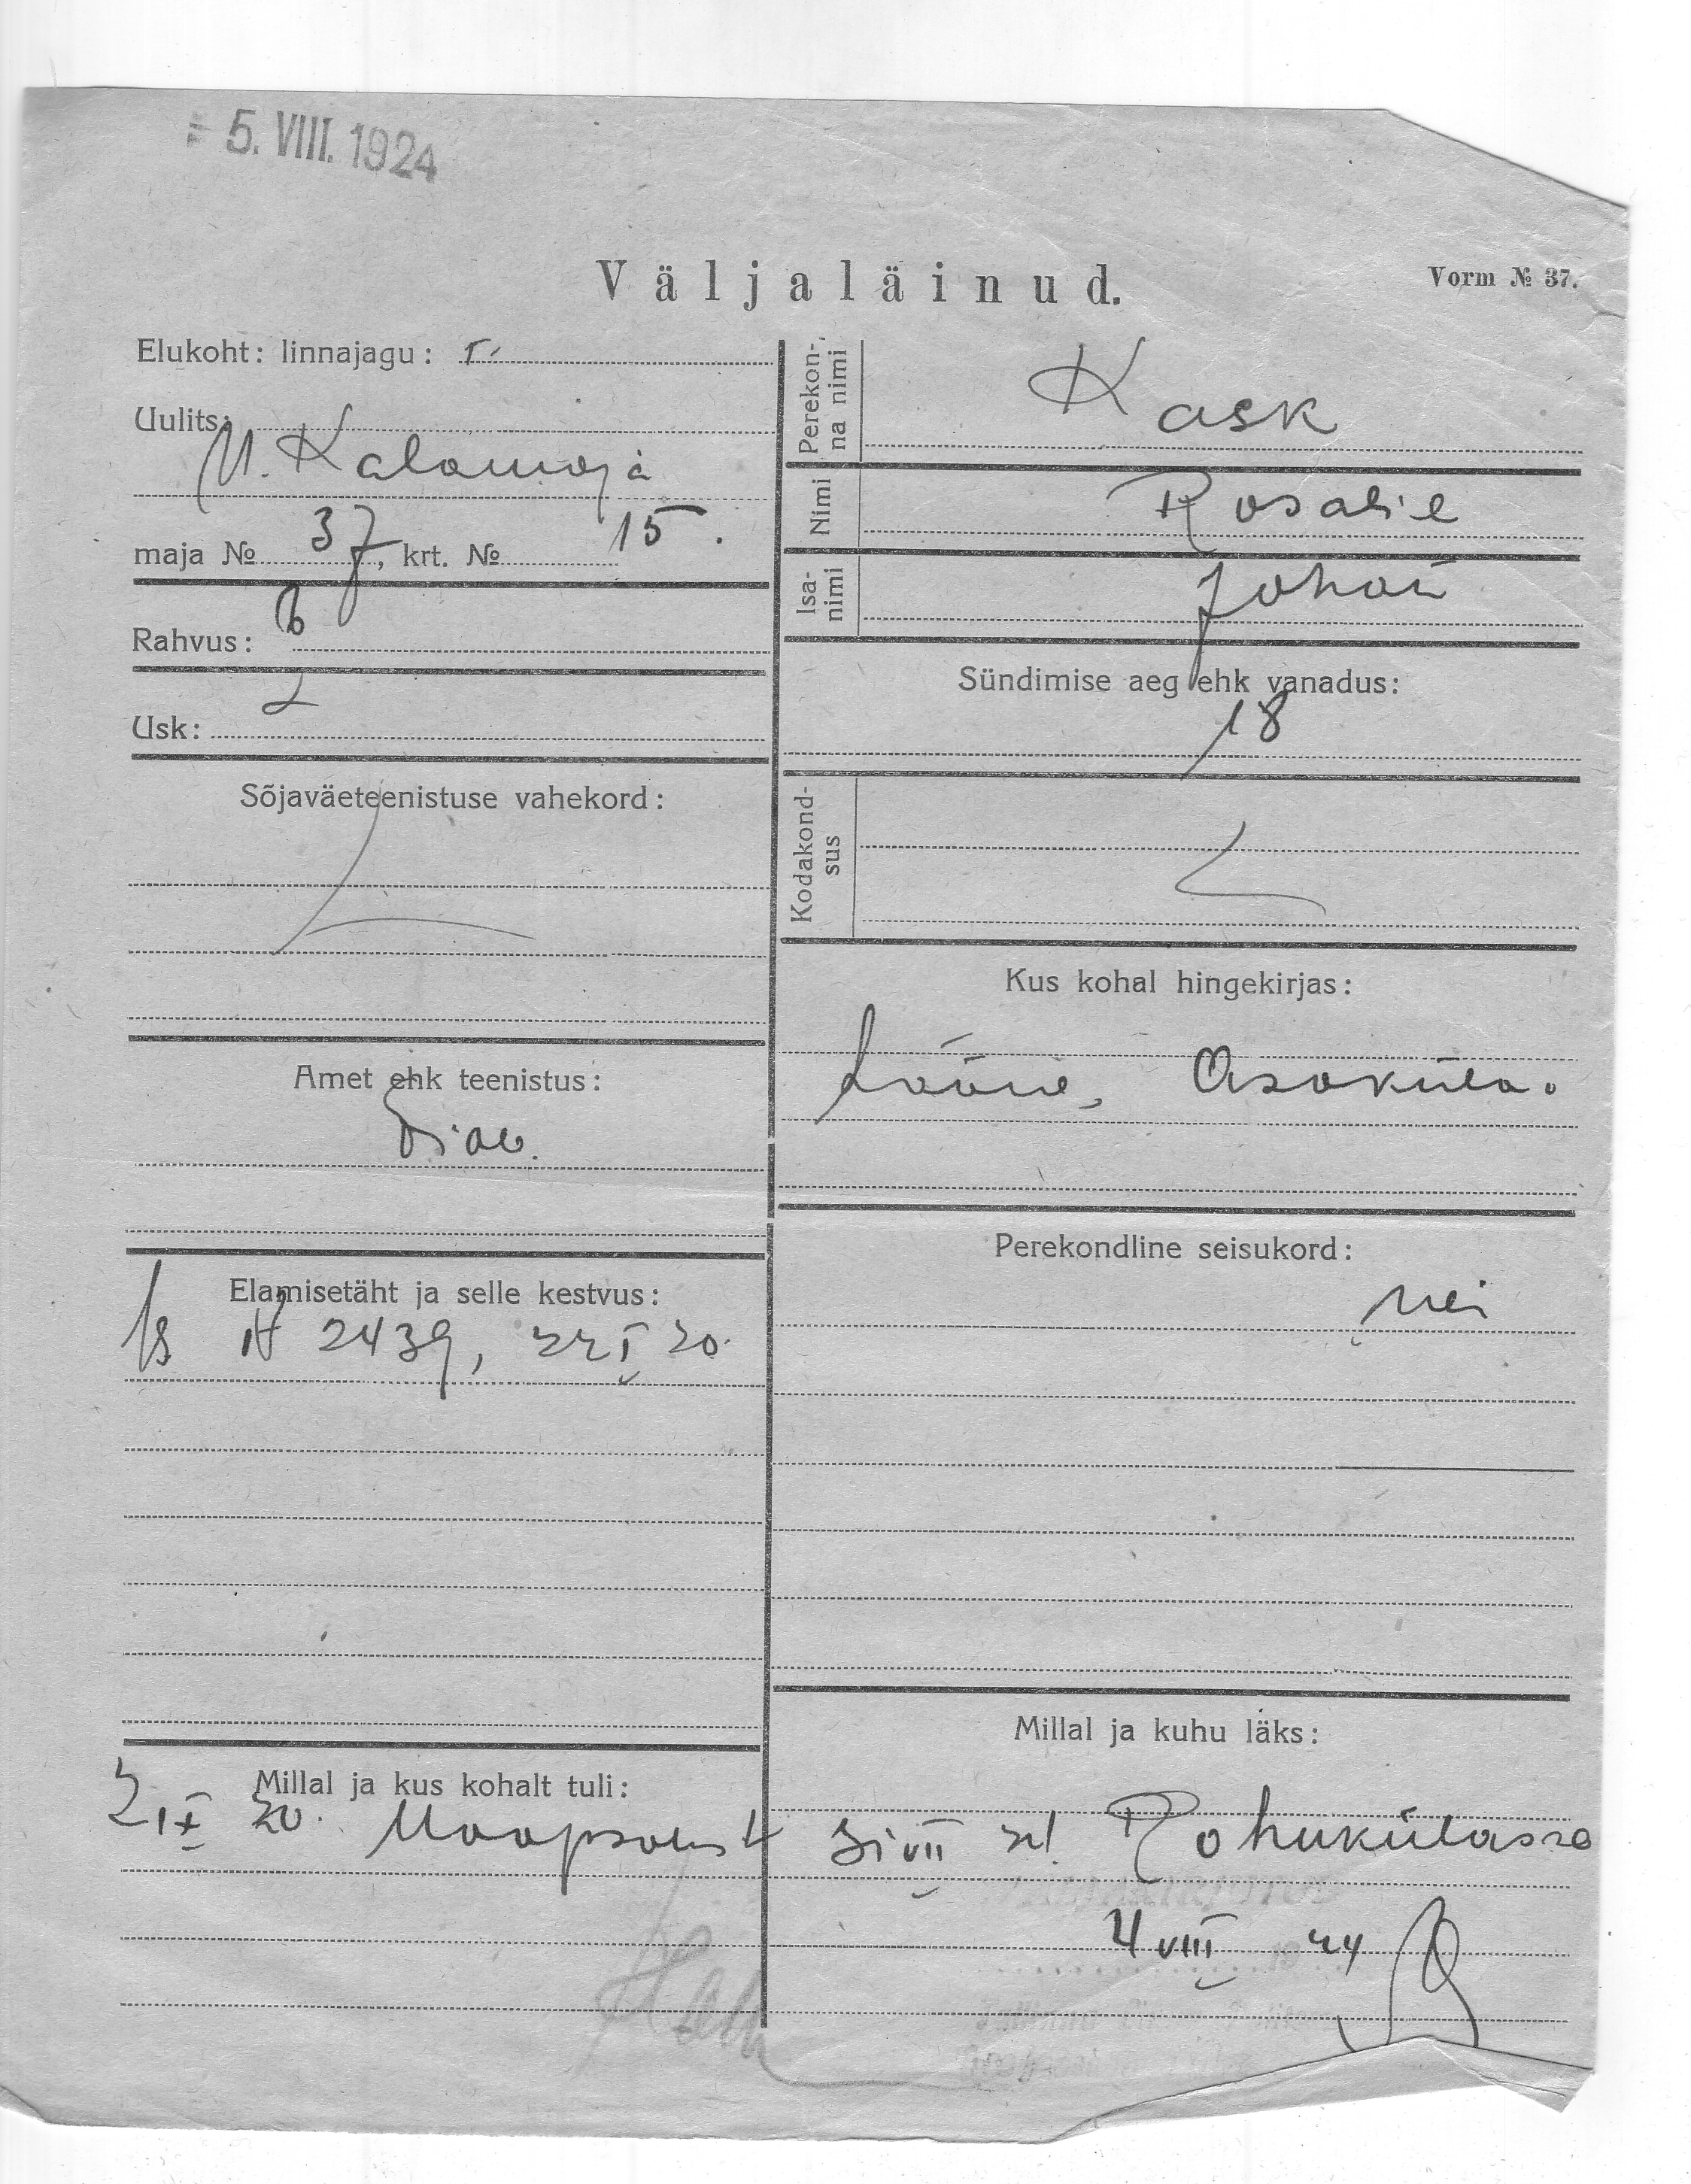 5. VIII. 1924
Väljaläinud.
Vorm № 37.
Elukoht: linnajagu: I
Uulits:
U. Kalamaja
maja № 37, krt. № 15.
Rahvus:
Usk: L
Sõjaväeteenistuse vahekord:
Amet ehk teenistus:
Elamisetäht ja selle kestvus:
№ 2439, 22 I 20.
Millal ja kus kohalt tuli:
2 IX 20. Haapsalust
Perekon-
na nimi
Kask
Nimi
Rosalie
Isa-
nimi
Johan
Sündimise aeg ehk vanadus:
18
Kodakond-
sus
Kus kohal hingekirjas:
Lääne, Asuküla.
Perekondline seisukord:
nei
Millal ja kuhu läks:
31 VII 24 Rohukülasse
4 VIII 24